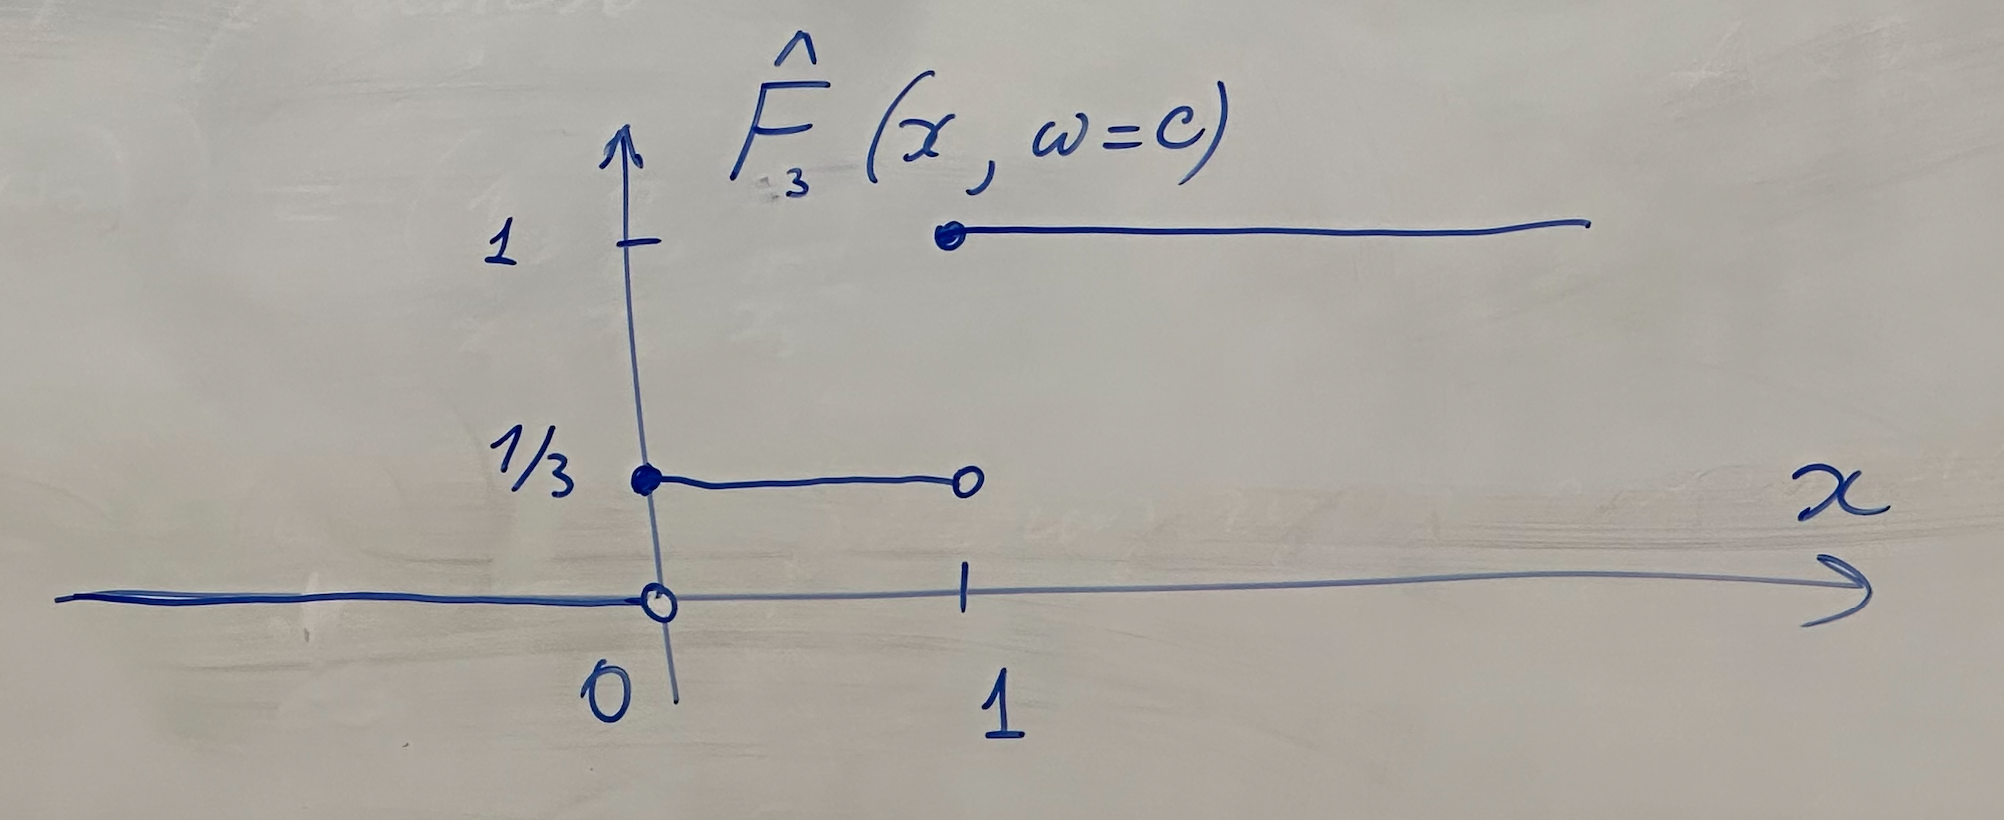 F̂₃ (x, ω=c)
1
1/3
x
0 1